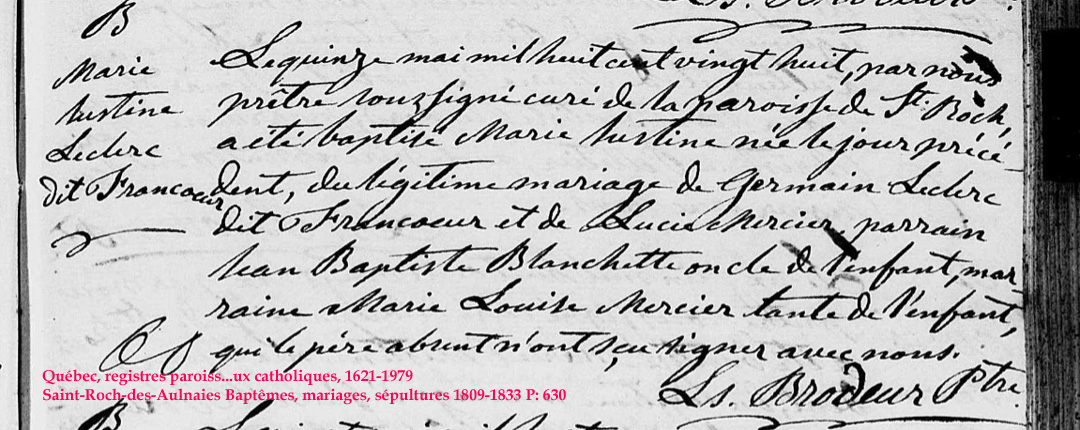 B
Marie
Justine
Leclerc
dit Francoeur
Le quinze mai mil huit cent vingt huit, par nous
prêtre souzsigné curé de la paroisse de St. Roch,
a été baptisé Marie Justine née le jour précé
dent, du légitime mariage de Germain Leclerc
dit Francoeur et de Lucie Mercier, parrain
Jean Baptiste Blanchette oncle de l'enfant, mar
raine Marie Louise Mercier tante de l'enfant,
qui le père absent n'ont sçu signer avec nous.
Ls. Brodeur Ptre.
Québec, registres paroiss...ux catholiques, 1621-1979
Saint-Roch-des-Aulnaies Baptêmes, mariages, sépultures 1809-1833 P: 630
B